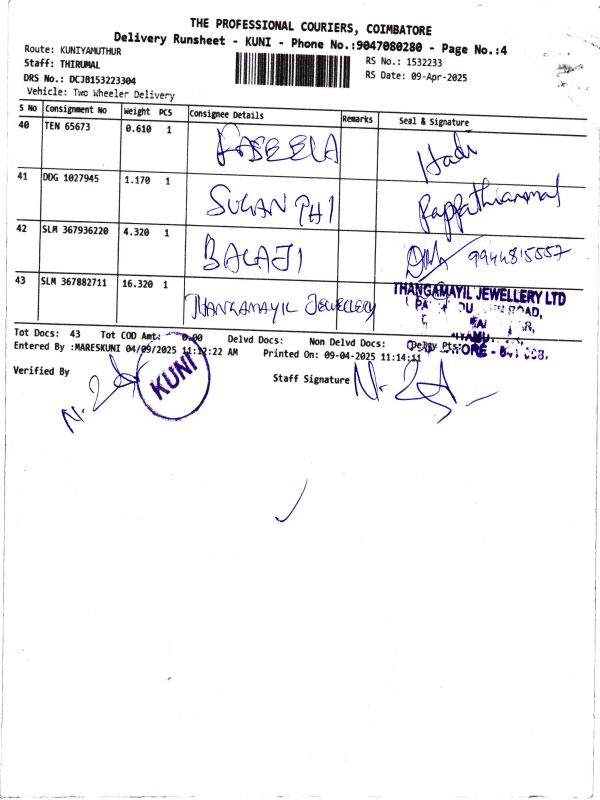 THE PROFESSIONAL COURIERS, COIMBATORE
Delivery Runsheet - KUNI - Phone No.:9047080280 - Page No.:4
Route: KUNIYAMUTHUR
RS No.: 1532233
Staff: THIRUMAL
RS Date: 09-Apr-2025
DRS No.: DCJB153223304
Vehicle: Two Wheeler Delivery
S No Consignment No Weight PCS Consignee Details Remarks Seal & Signature
40 TEN 65673 0.610 1 RASEELA Hadi
41 DDG 1027945 1.170 1 SUGANTHI Pappathiammal
42 SLM 367936220 4.320 1 BALAJI 9944815557
43 SLM 367882711 16.320 1 THANGAMAYIL JEWELLERY THANGAMAYIL JEWELLERY LTD
ROAD,
Tot Docs: 43 Tot COD Amt: 0.00 Delvd Docs: Non Delvd Docs: Delay Pts:
Entered By :MARESKUNI 04/09/2025 11:12:22 AM Printed On: 09-04-2025 11:14:11
Verified By KUNI Staff Signature